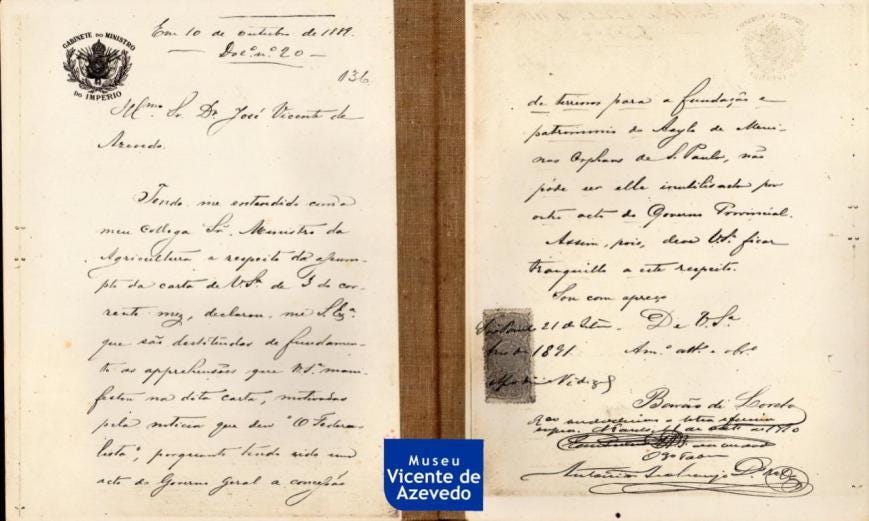 GABINETE DO MINISTRO
DO IMPERIO
Em 10 de outubro de 1889.
Doc.º n.º 20
136
Illmo Sr. Dr. José Vicente de
Azevedo.
Tendo me entendido com o
meu collega Sr. Ministro da
Agricultura a respeito do assum-
pto da carta de V.Sª de 3 do cor-
rente mez, declarou-me S. Exª
que são destituidas de fundamen-
to as apprehensões que V.Sª mani-
festou na dita carta, motivadas
pela noticia que deu "O Federa-
lista", porquanto tendo sido um
acto do Governo Geral a concessão
de terrenos para a fundação e
patrimonio do Asylo de Meni-
nas Orphans de S. Paulo, não
póde ser ella inutilisada por
outro acto do Governo Provincial.
Assim, pois, deve V.Sª ficar
tranquillo a este respeito.
Sou com apreço
De V.Sª
Amº attº e obrº
Barão de Loreto
21 de
de 1891.
Museu
Vicente de
Azevedo